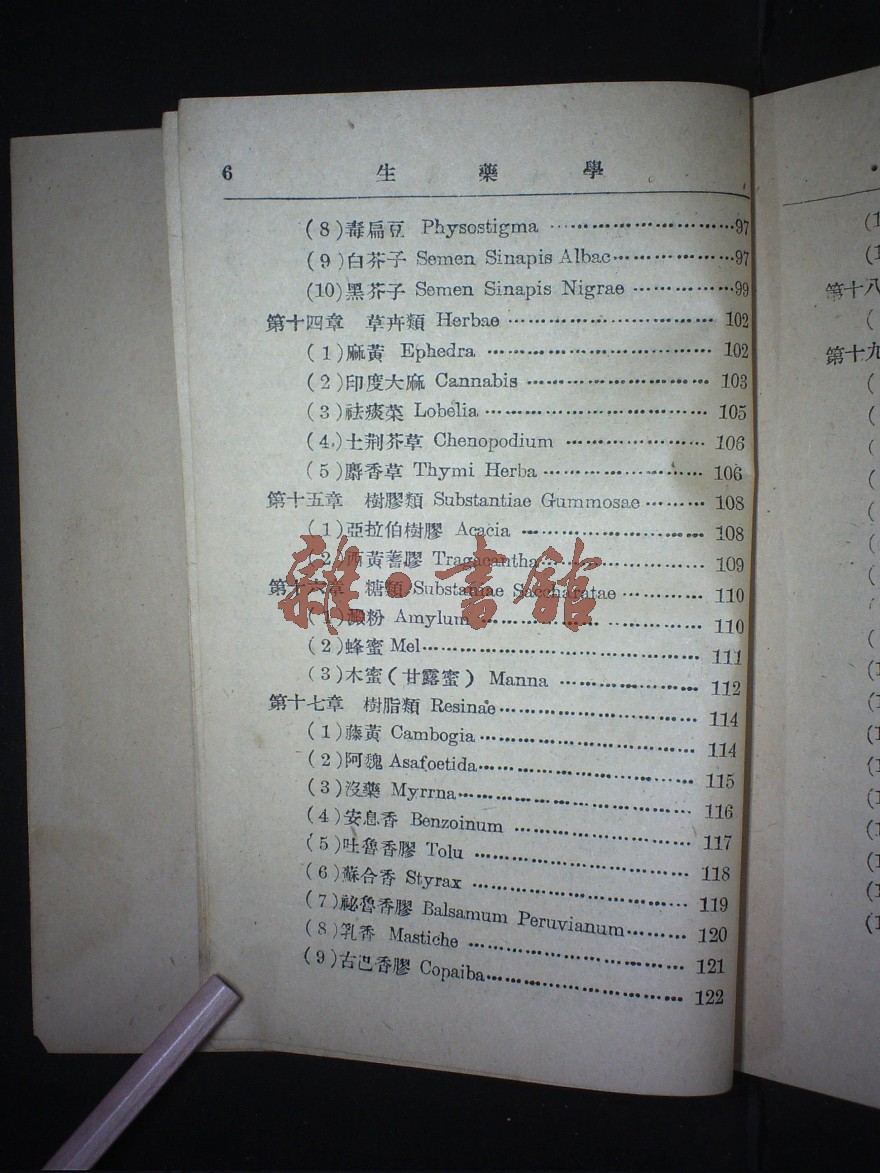 6 生藥學
(8)毒扁豆 Physostigma ……………………………97
(9)白芥子 Semen Sinapis Albae………………97
(10)黑芥子 Semen Sinapis Nigrae ………………99
第十四章 草卉類 Herbae ……………………………… 102
(1)麻黃 Ephedra ……………………………… 102
(2)印度大麻 Cannabis ………………………… 103
(3)祛痰菜 Lobelia ……………………………… 105
(4)土荆芥草 Chenopodium ………………… 106
(5)麝香草 Thymi Herba ……………………… 106
第十五章 樹膠類 Substantiae Gummosae ……… 108
(1)亞拉伯樹膠 Acacia ………………………… 108
(2)西黃蓍膠 Tragacantha……………………… 109
第十六章 糖類 Substaniae Saccharatae ………… 110
(1)澱粉 Amylum ……………………………… 110
(2)蜂蜜 Mel……………………………………… 111
(3)木蜜(甘露蜜) Manna ………………… 112
第十七章 樹脂類 Resinae……………………………… 114
(1)藤黃 Cambogia ……………………………… 114
(2)阿魏 Asafoetida……………………………… 115
(3)沒藥 Myrrna…………………………………… 116
(4)安息香 Benzoinum ………………………… 117
(5)吐魯香膠 Tolu ……………………………… 118
(6)蘇合香 Styrax ……………………………… 119
(7)祕魯香膠 Balsamum Peruvianum……… 120
(8)乳香 Mastiche ……………………………… 121
(9)古巴香膠 Copaiba…………………………… 122
雜·書館
(1
(1
第十八
(
第十九
(
(
(
(
(
(
(
(
(
(1
(1
(1
(1
(1
(1
(1
(1